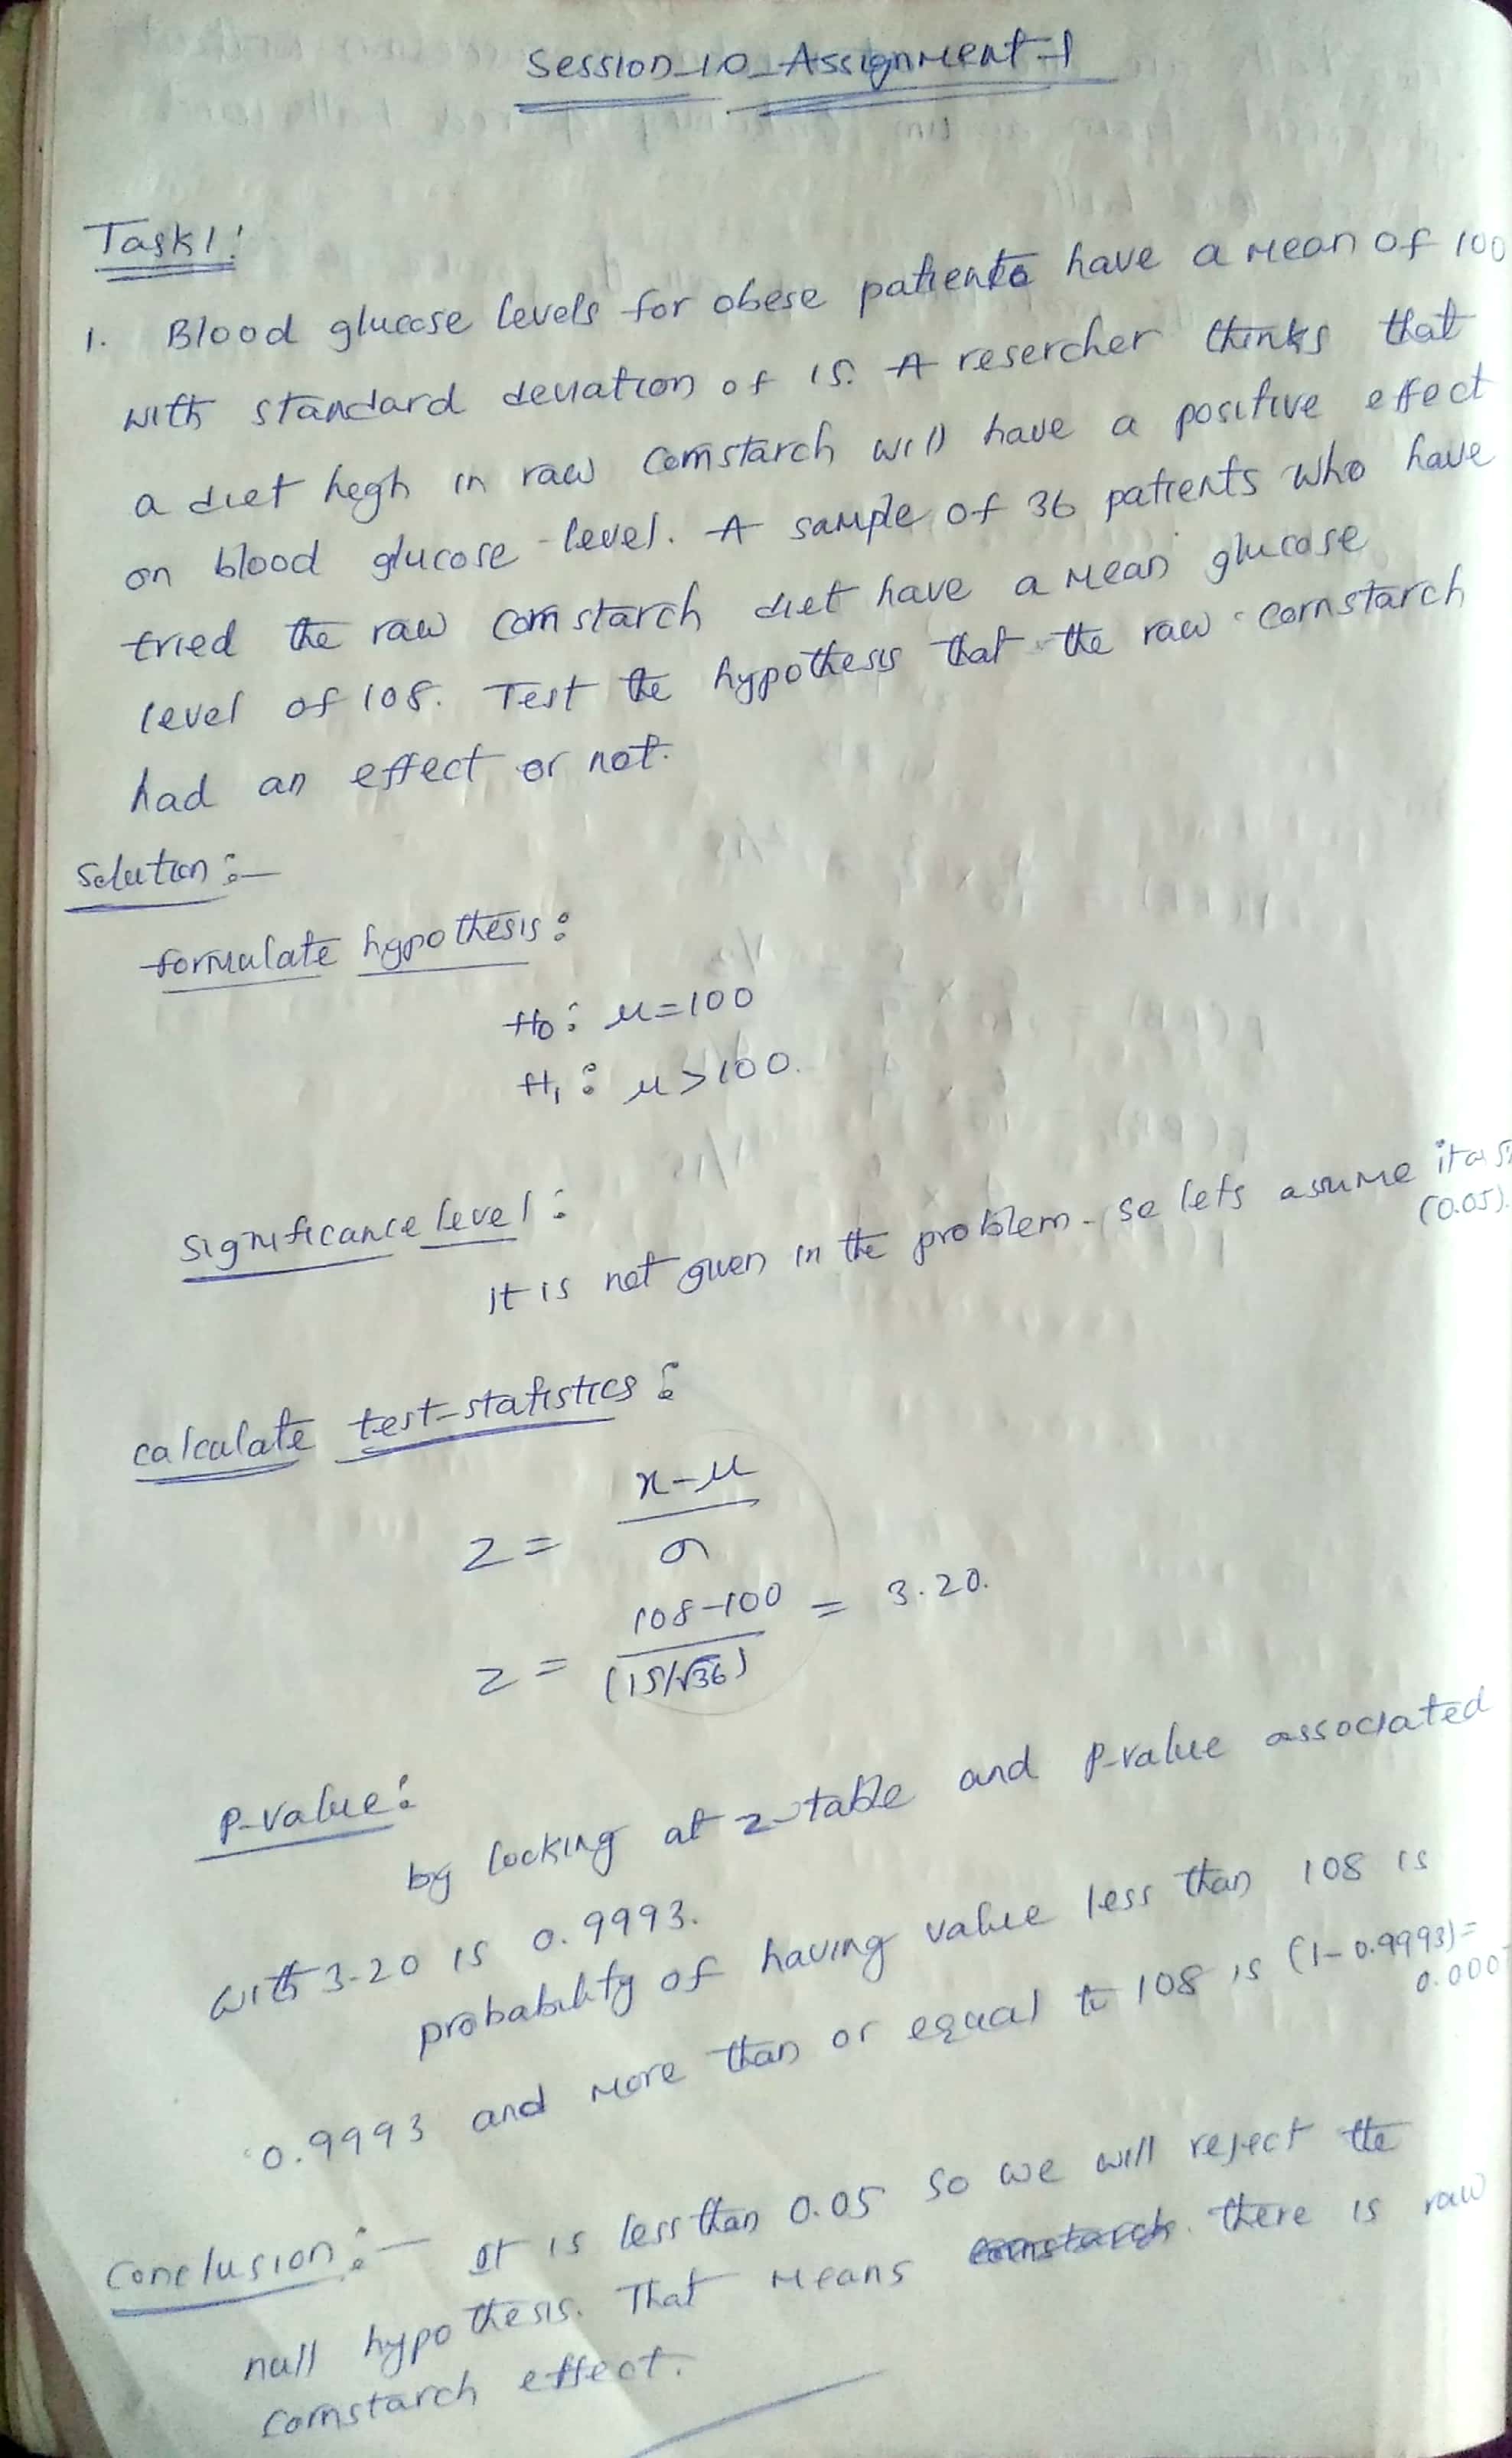 Session_10_Assignment-1
Task 1:
1. Blood glucose levels for obese patients have a mean of 100
with standard deviation of 15. A resercher thinks that
a diet hegh in raw cornstarch will have a positive effect
on blood glucose level. A sample of 36 patients who have
tried the raw corn starch diet have a mean glucose
level of 108. Test the hypothesis that the raw cornstarch
had an effect or not.
Solution :-
formulate hypothesis :
H0 : μ=100
H1 : μ>100.
Significance level :
it is not given in the problem - so lets assume it as
(0.05).
calculate test-statistics :
x-μ
z = ―
σ
108-100
z = ― = 3.20.
(15/√36)
P-value :
by looking at z-table and p-value associated
with 3.20 is 0.9993.
probability of having value less than 108 is
0.9993 and more than or equal to 108 is (1-0.9993)=
0.000
Conclusion :- It is less than 0.05 so we will reject the
null hypothesis. That means there is raw
cornstarch effect.